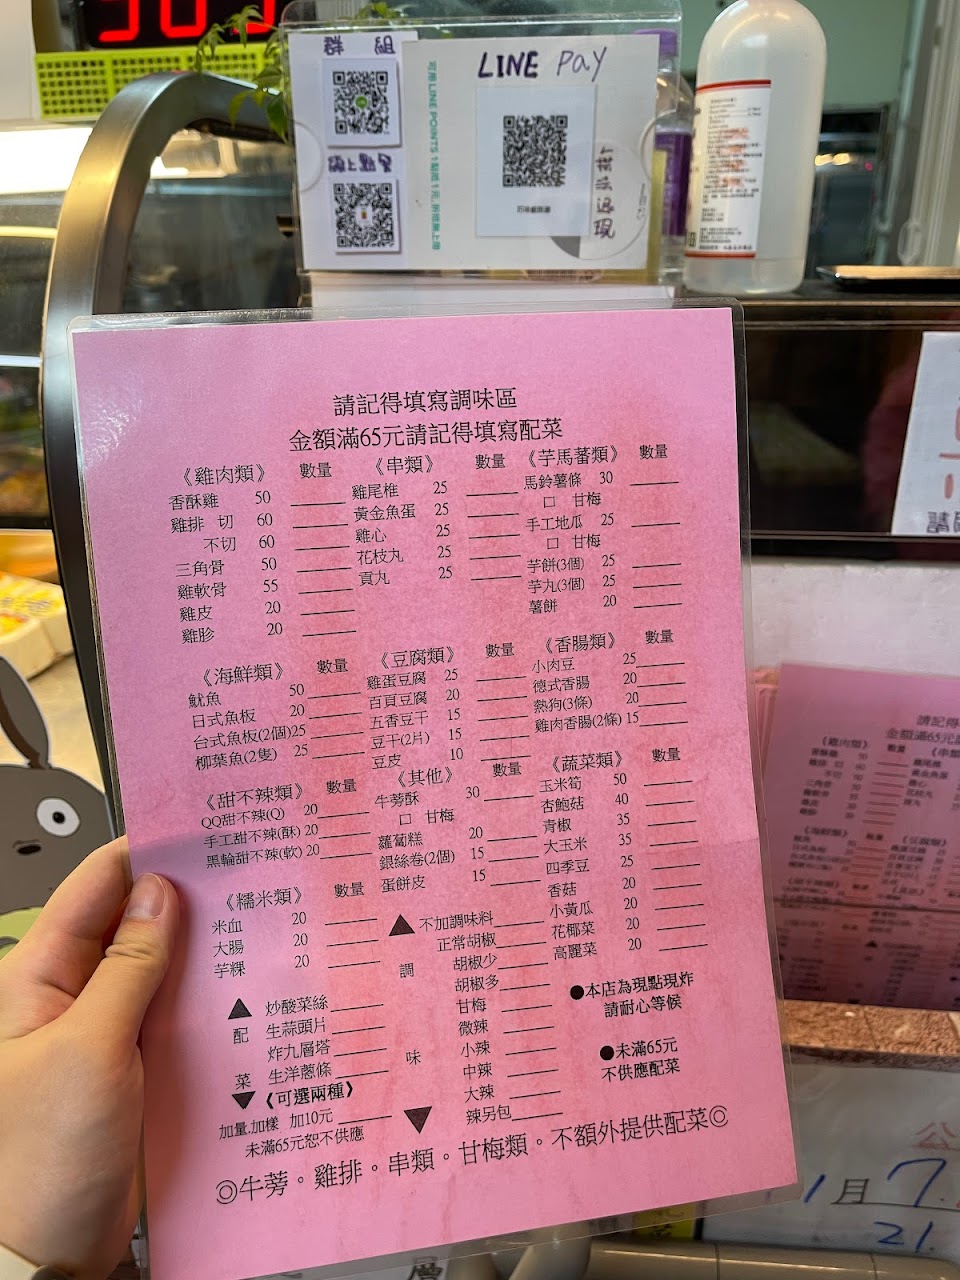 群 組
線上點餐
LINE Pay
可用 LINE POINTS 1點抵1元,折抵無上限
請記得填寫調味區
金額滿65元請記得填寫配菜
《雞肉類》 數量
香酥雞 50
雞排 切 60
不切 60
三角骨 50
雞軟骨 55
雞皮 20
雞胗 20
《串類》 數量
雞尾椎 25
黃金魚蛋 25
雞心 25
花枝丸 25
貢丸 25
《芋馬蕃類》 數量
馬鈴薯條 30
口 甘梅
手工地瓜 25
口 甘梅
芋餅(3個) 25
芋丸(3個) 25
薯餅 20
《海鮮類》 數量
魷魚 50
日式魚板 20
台式魚板(2個)25
柳葉魚(2隻) 25
《豆腐類》 數量
雞蛋豆腐 25
百頁豆腐 20
五香豆干 15
豆干(2片) 15
豆皮 10
《香腸類》 數量
小肉豆 25
德式香腸 20
熱狗(3條) 20
雞肉香腸(2條) 15
《甜不辣類》 數量
QQ甜不辣(Q) 20
手工甜不辣(酥) 20
黑輪甜不辣(軟) 20
《其他》 數量
牛蒡酥 30
口 甘梅
蘿蔔糕 20
銀絲卷(2個) 15
蛋餅皮 15
《蔬菜類》 數量
玉米筍 50
杏鮑菇 40
青椒 35
大玉米 35
四季豆 25
香菇 20
小黃瓜 20
花椰菜 20
高麗菜 20
《糯米類》 數量
米血 20
大腸 20
芋粿 20
▲ 配 菜 ▼
炒酸菜絲
生蒜頭片
炸九層塔
生洋蔥條
《可選兩種》
加量.加樣 加10元
未滿65元恕不供應
▲ 調 味 ▼
不加調味料
正常胡椒
胡椒少
胡椒多
甘梅
微辣
小辣
中辣
大辣
辣另包
●本店為現點現炸
請耐心等候
●未滿65元
不供應配菜
◎牛蒡。雞排。串類。甘梅類。不額外提供配菜◎
公
月 7.
21.